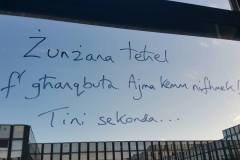 Żunżana teħel
f' għanqbuta Ajma kemm nifhmek!
Tini sekonda...